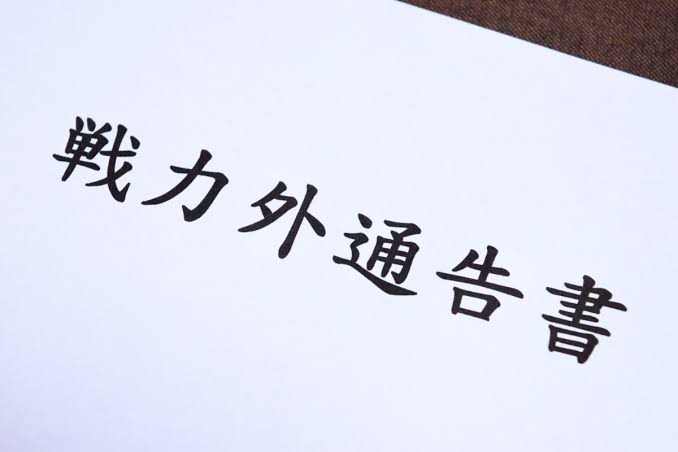 戦力外通告書